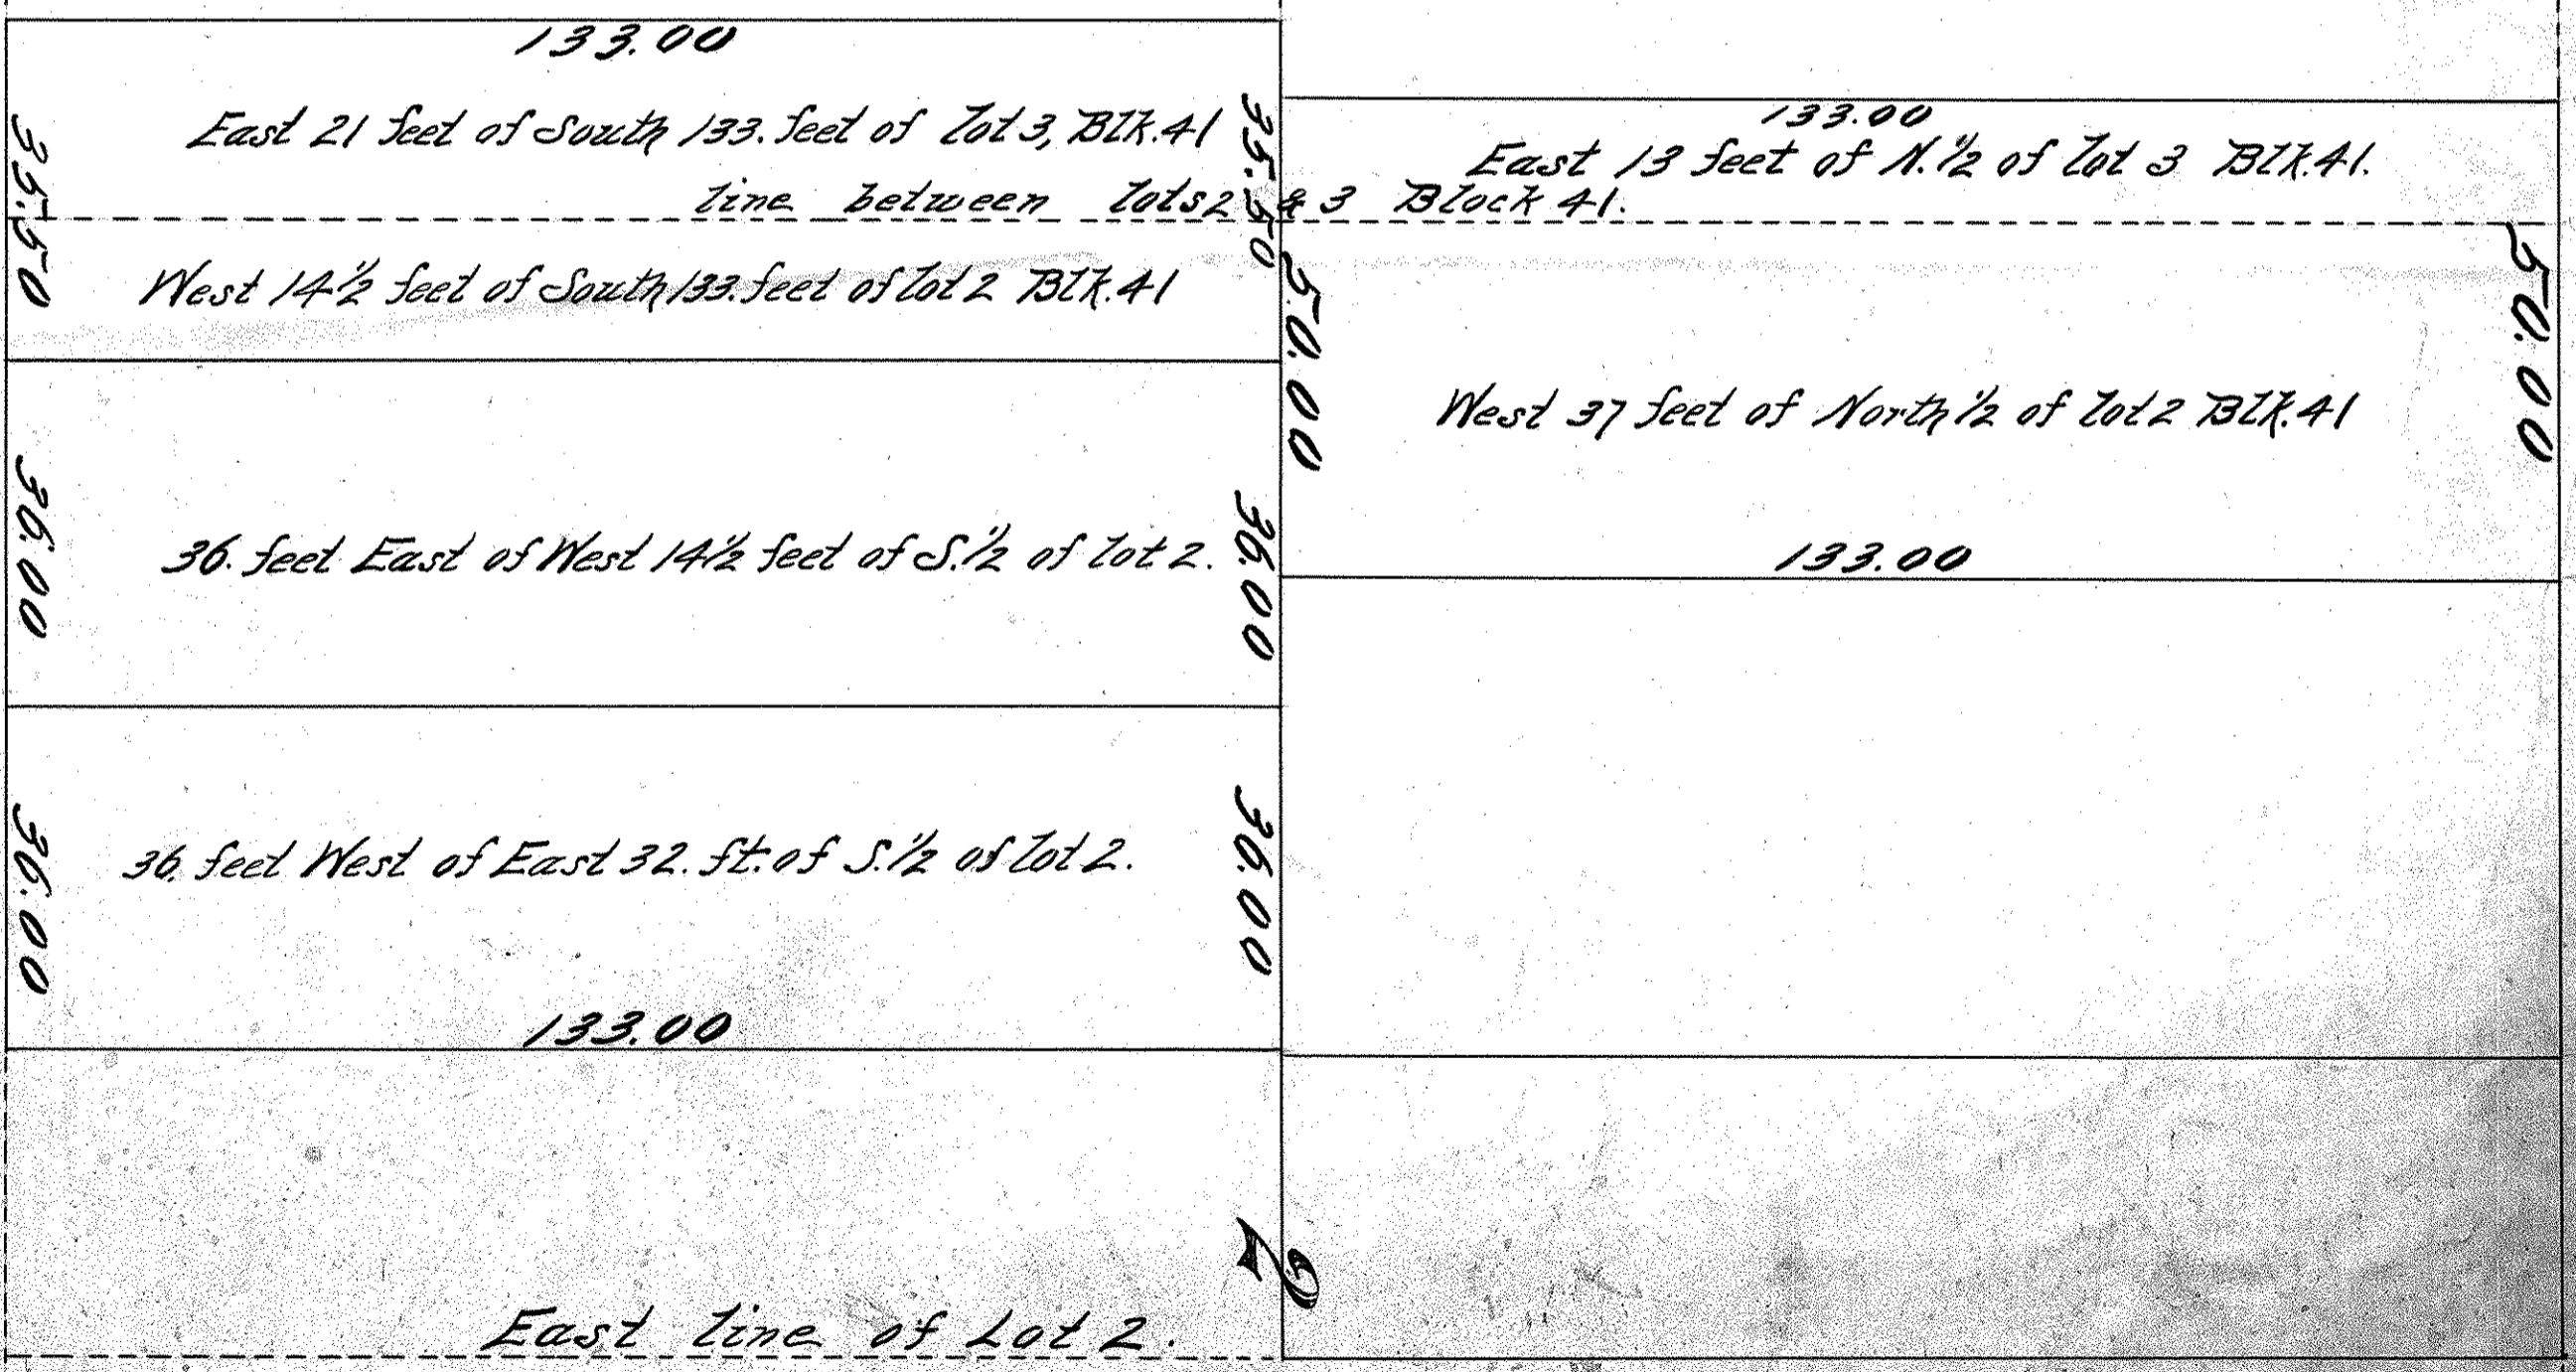 133.00
East 21 feet of South 133. feet of lot 3, Blk. 41
35.50
35.50
line between lots 2 & 3 Block 41.
West 14 1/2 feet of South 133. feet of lot 2 Blk. 41
36.00
36. feet East of West 14 1/2 feet of S. 1/2 of lot 2.
36.00
36.00
36. feet West of East 32. ft. of S. 1/2 of lot 2.
36.00
133.00
East line of Lot 2.
2
133.00
East 13 feet of N. 1/2 of lot 3 Blk. 41.
50.00
50.00
West 37 feet of North 1/2 of lot 2 Blk. 41
133.00